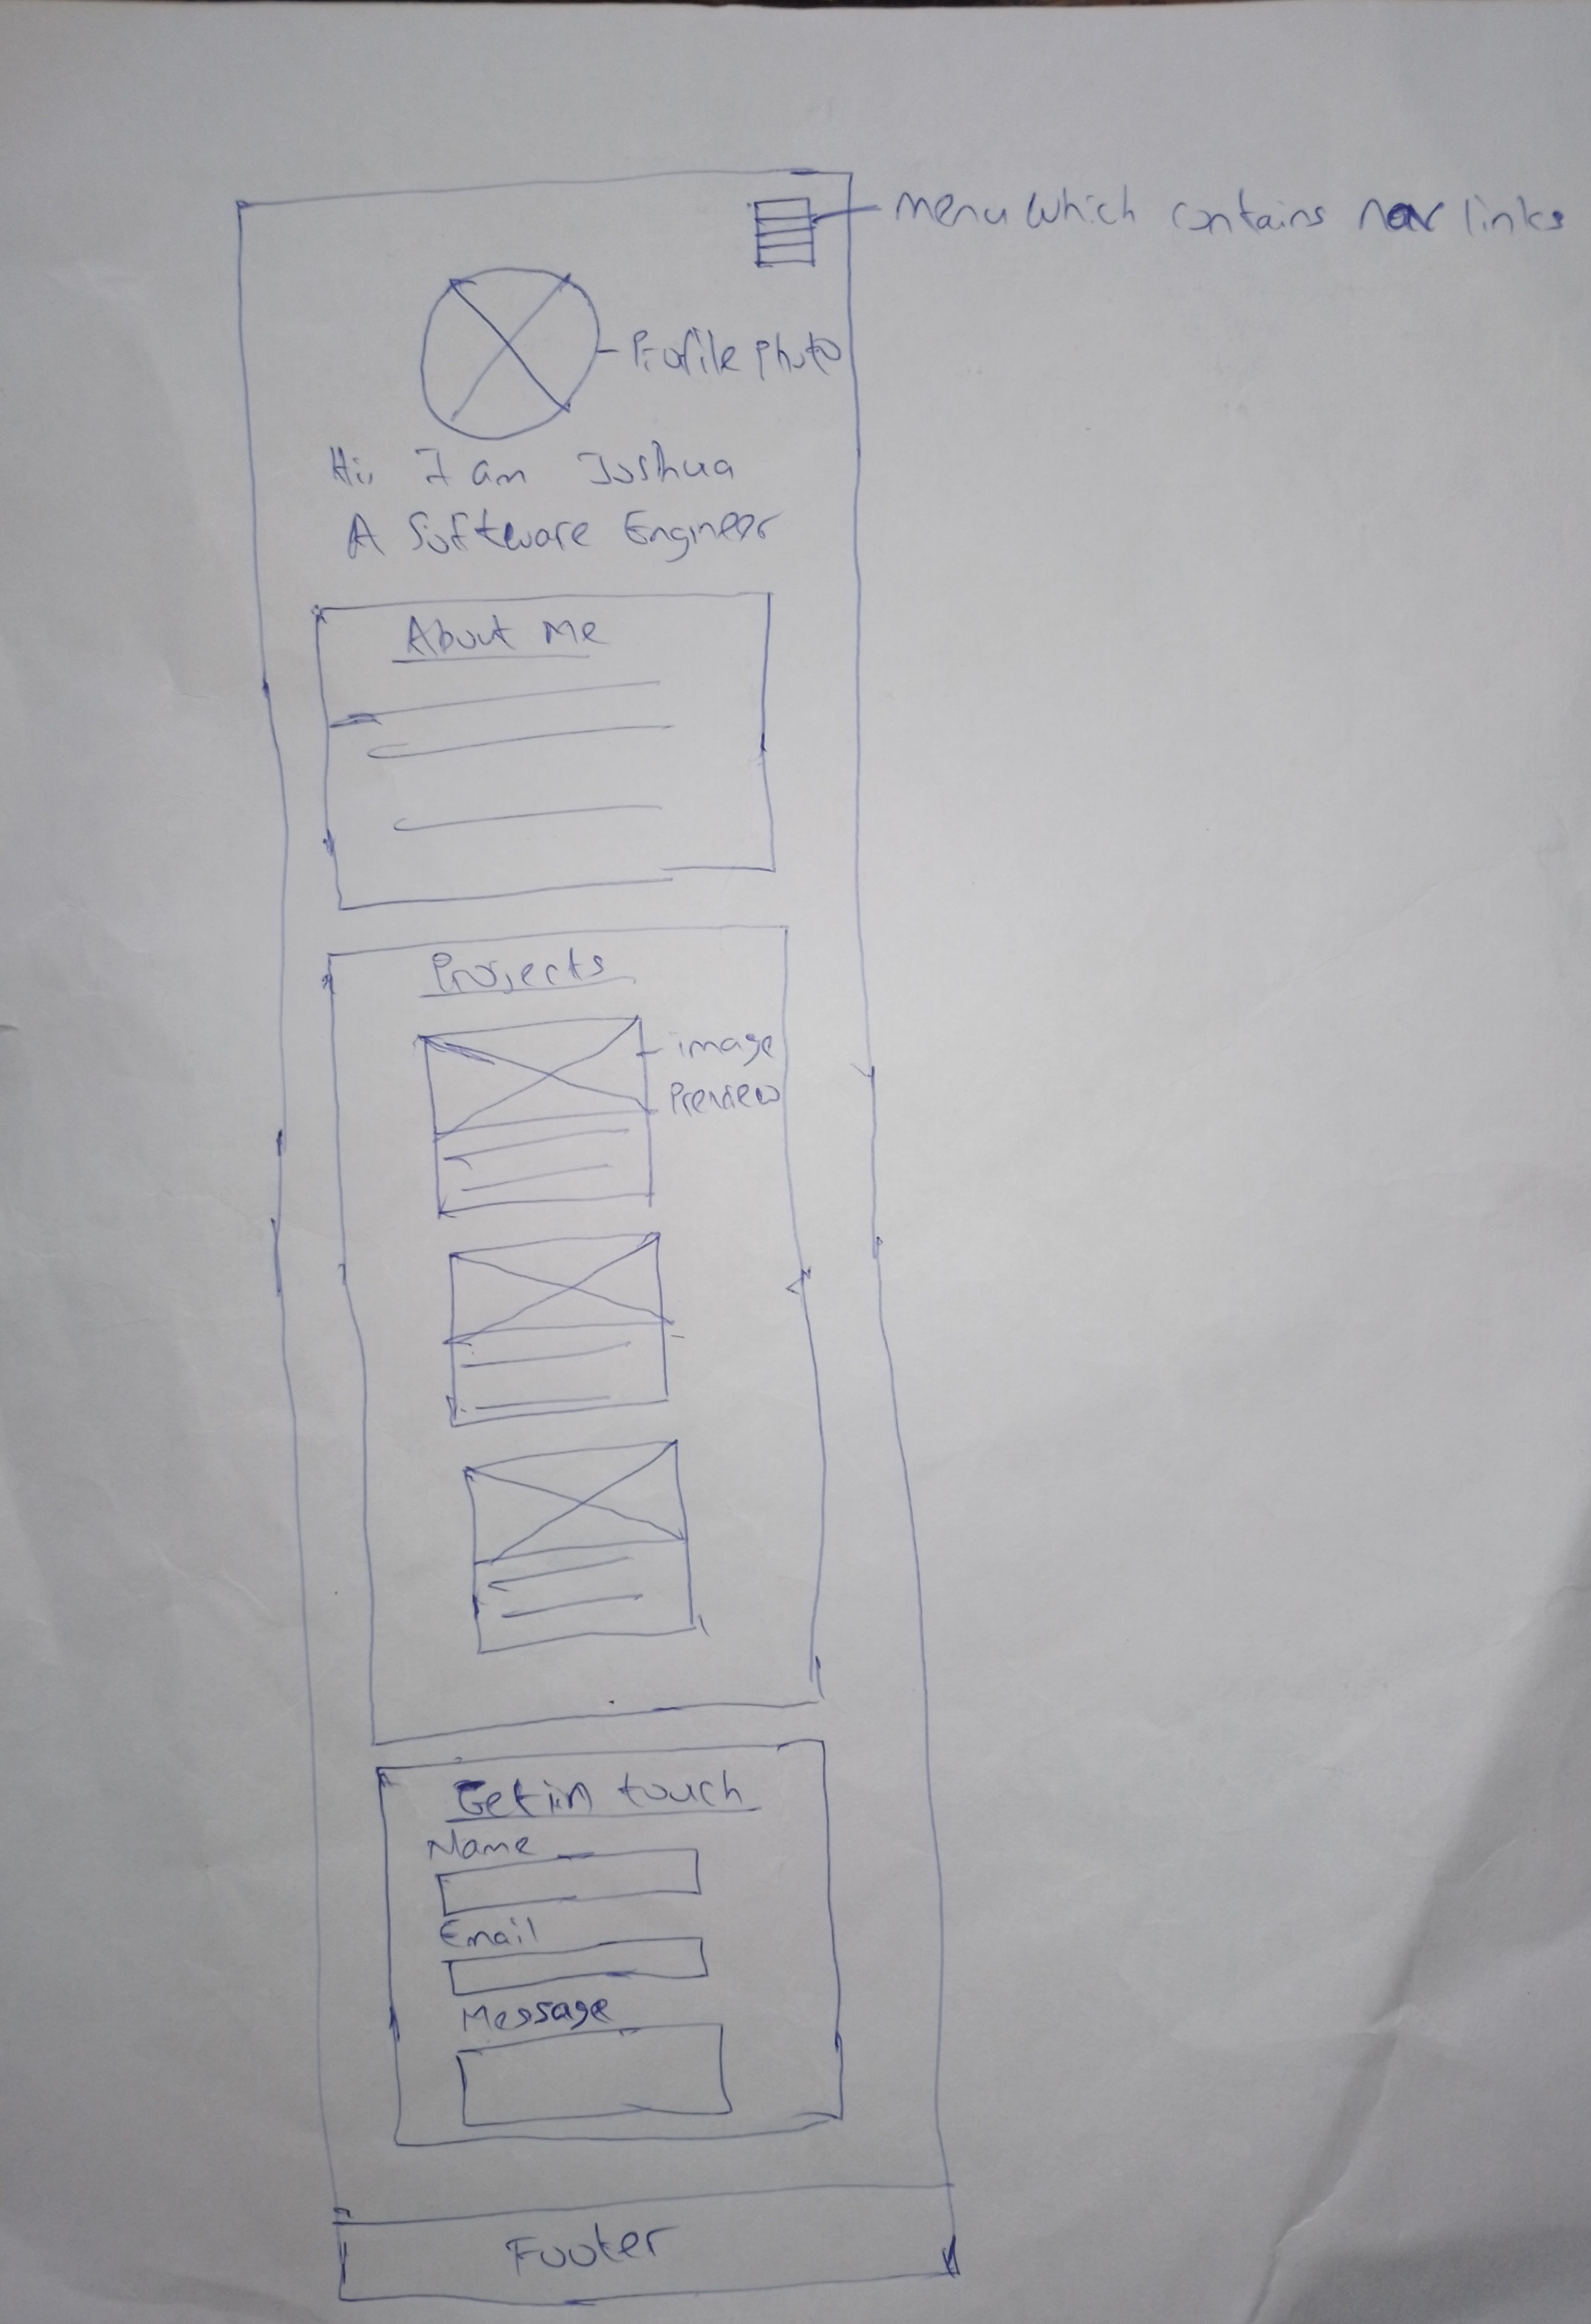 menu which contains nav links
Profile photo
Hi, I am Joshua
A Software Engineer
About Me
Projects
image
Preview
Get in touch
Name
Email
Message
Footer